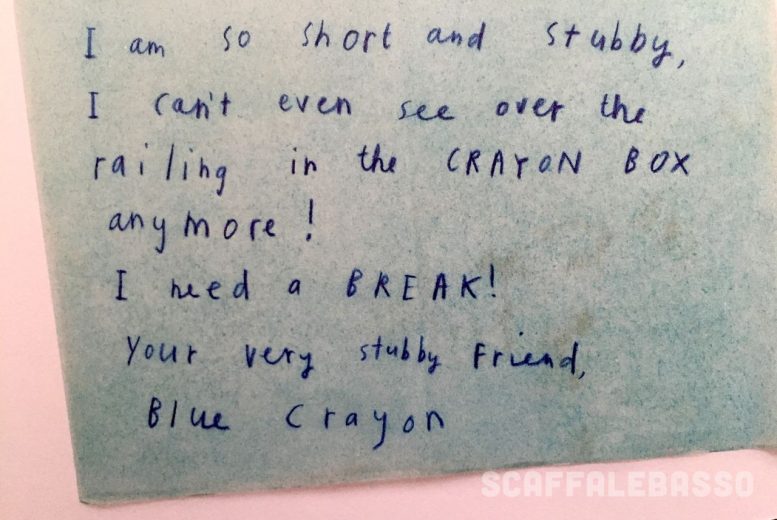 I am so short and stubby,
I can't even see over the
railing in the CRAYON BOX
anymore!
I need a BREAK!
Your very stubby friend,
Blue Crayon
SCAFFALEBASSO